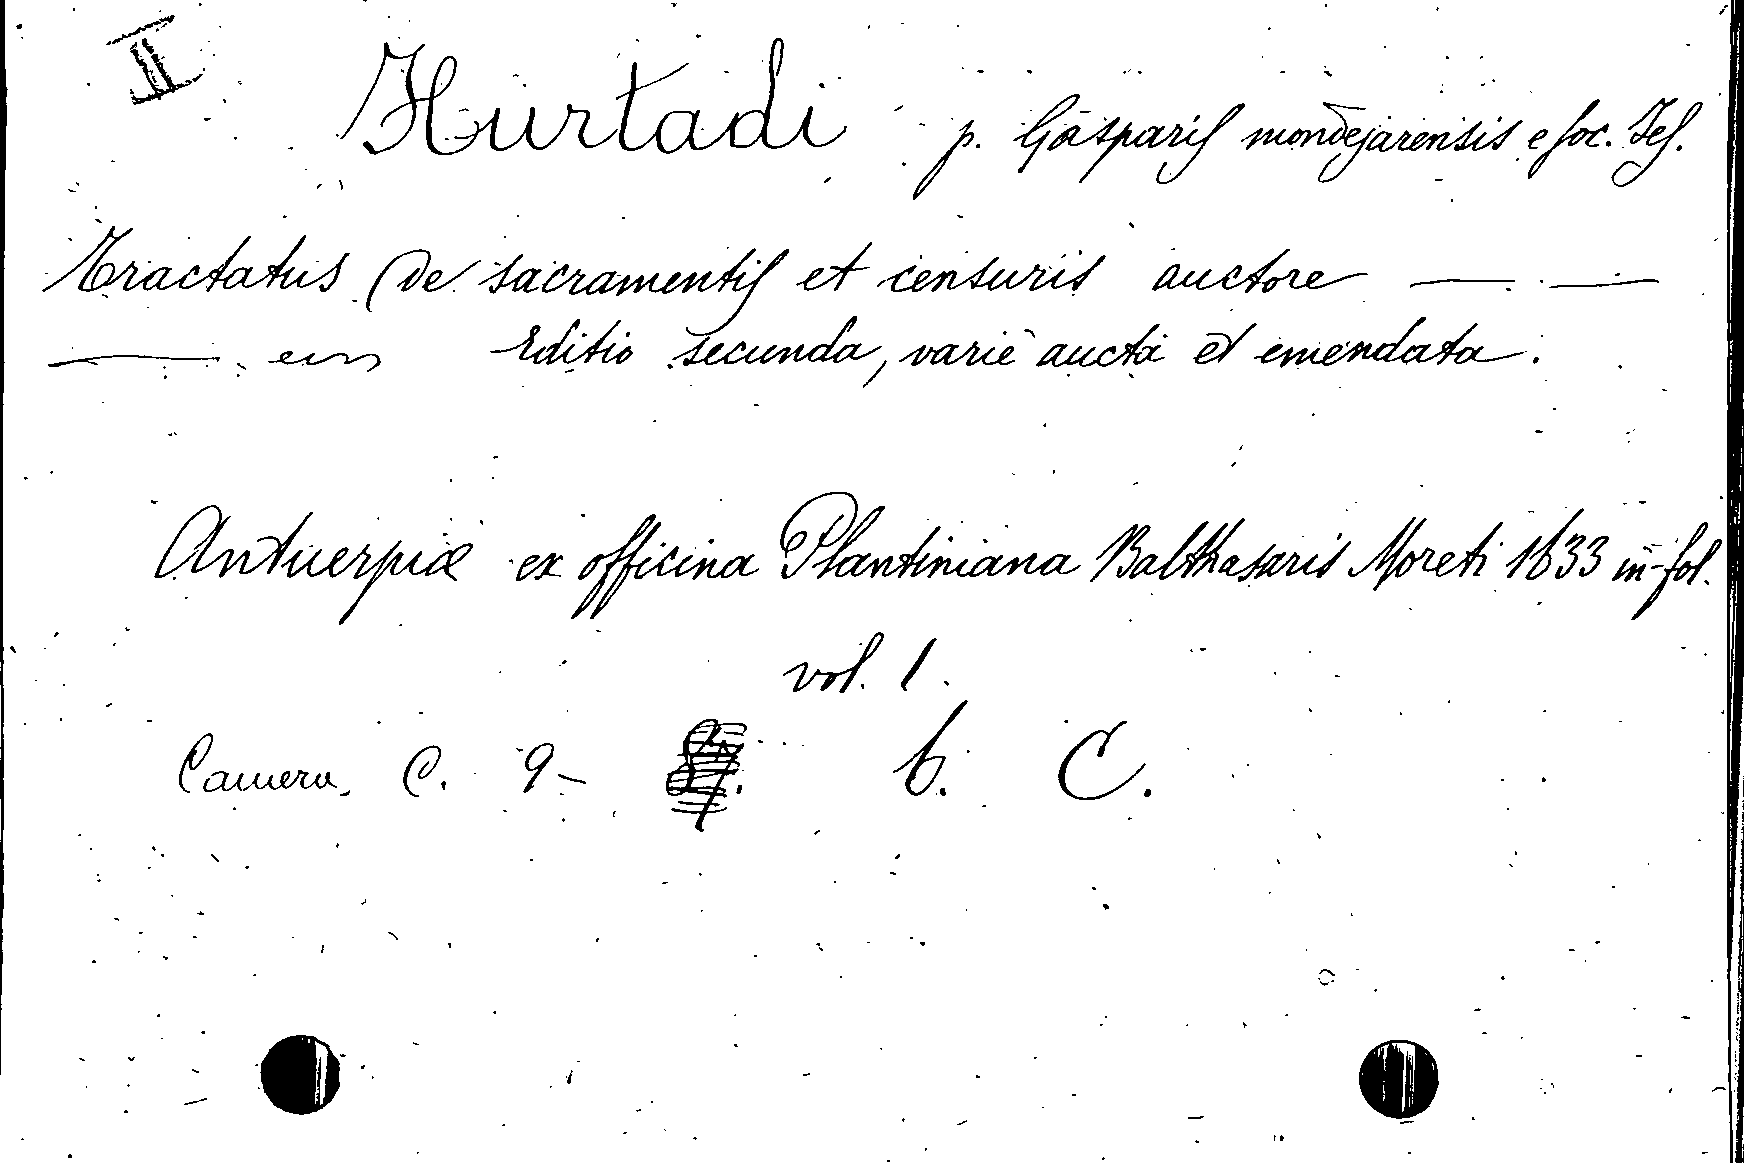 I
Hurtadi p. Gasparis mondejarensis e soc. Jes.
Tractatus de sacramentis et censuris auctore — —
— Editio secunda, varie aucta et emendata.
Antuerpiæ ex officina Plantiniana Balthasaris Moreti 1633 in-fol.
vol. 1.
Camera, C. 9- 6. C.